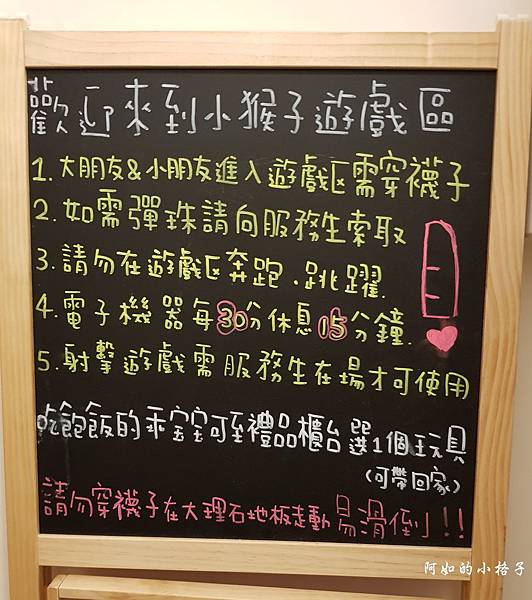 歡迎來到小猴子遊戲區
1.大朋友&小朋友進入遊戲区需穿襪子
2.如需彈珠請向服務生索取
3.請勿在遊戲区奔跑.跳躍.
4.電子機器每30分休息15分鐘.
5.射擊遊戲需服務生在場才可使用
吃飽飯的乖宝宝可至禮品櫃台選1個玩具
(可帶回家)
請勿穿襪子在大理石地板走動易滑倒!!
阿如的小格子